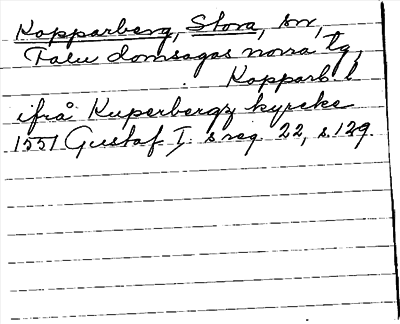 Kopparberg, Stora, sn,
Falu domsagas norra tg,
Kopparb l
ifrå Kuperbergz kyrcke
1551 Gustaf I:s reg. 22, s. 129.